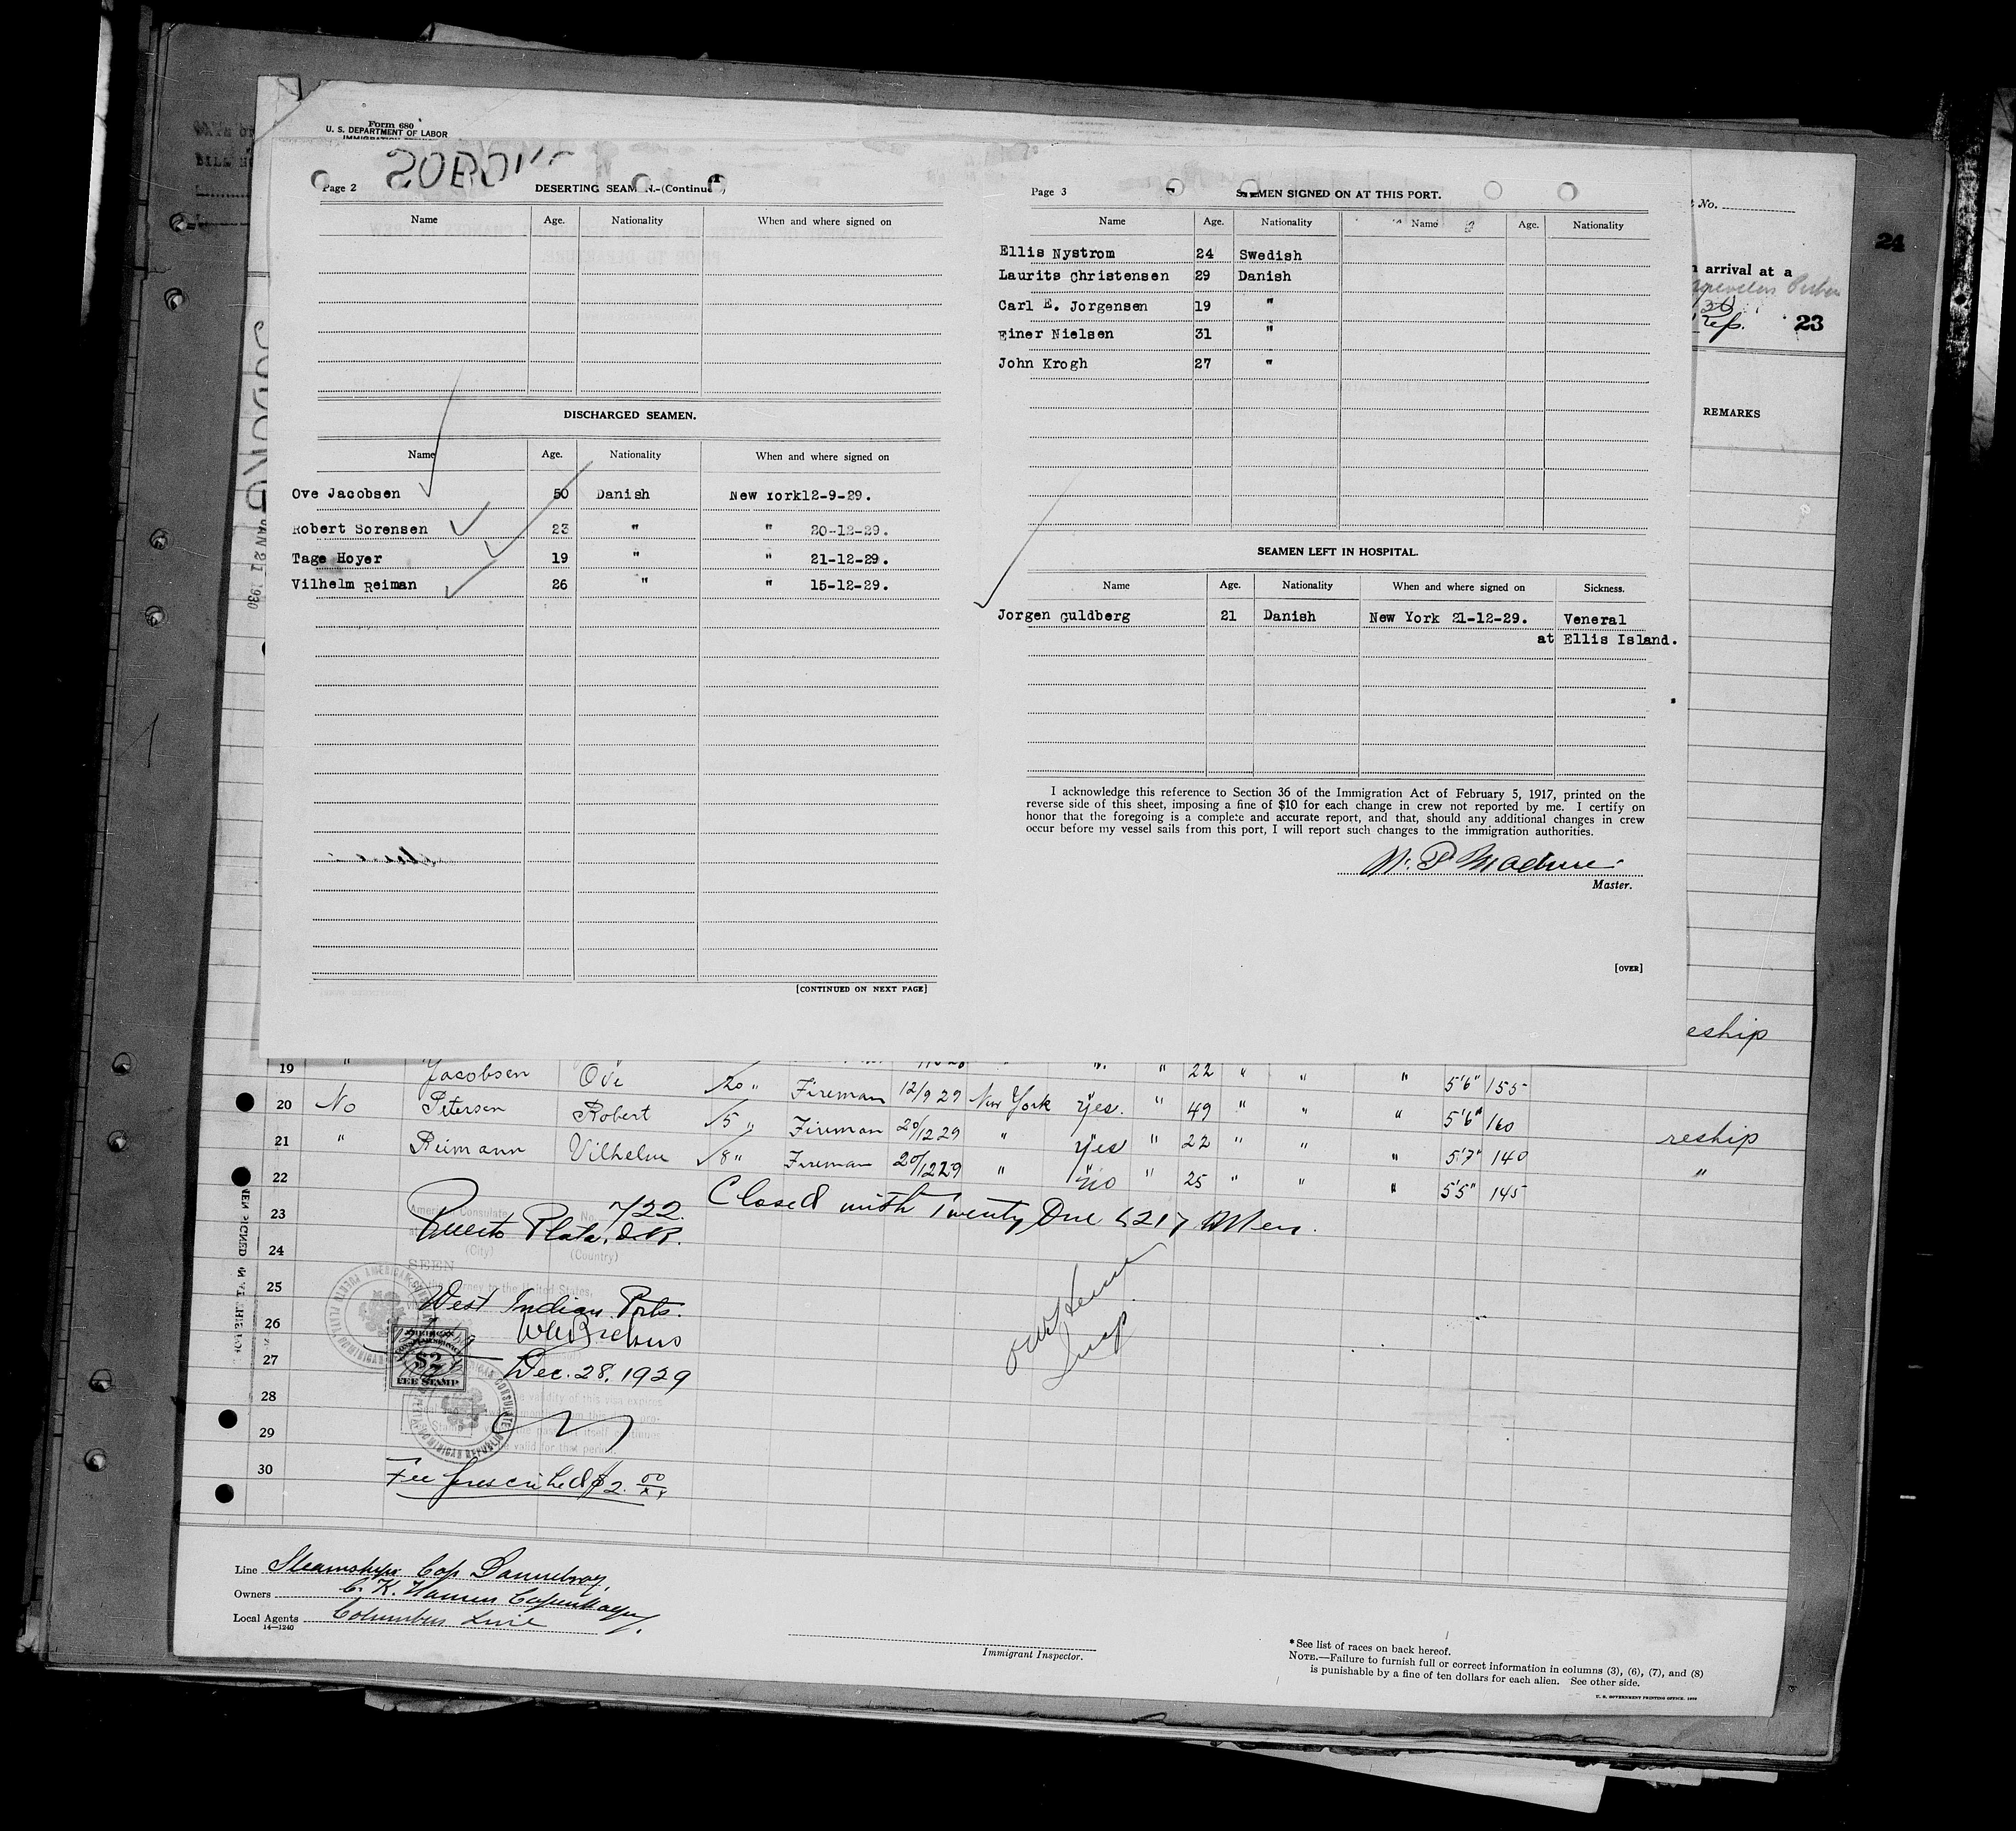 Form 680
U. S. DEPARTMENT OF LABOR
Page 2
DESERTING SEAMEN.-(Continued)
Name Age. Nationality When and where signed on
DISCHARGED SEAMEN.
Name Age. Nationality When and where signed on
Ove Jacobsen 50 Danish New York12-9-29.
Robert Sorensen 23 " " 20-12-29.
Tage Hoyer 19 " " 21-12-29.
Vilhelm Reiman 26 " " 15-12-29.
[CONTINUED ON NEXT PAGE]
Page 3 SEAMEN SIGNED ON AT THIS PORT.
Name Age. Nationality Name Age. Nationality
Ellis Nystrom 24 Swedish
Laurits Christensen 29 Danish
Carl E. Jorgensen 19 "
Einer Nielsen 31 "
John Krogh 27 "
SEAMEN LEFT IN HOSPITAL.
Name Age. Nationality When and where signed on Sickness.
Jorgen Guldberg 21 Danish New York 21-12-29. Veneral
at Ellis Island.
I acknowledge this reference to Section 36 of the Immigration Act of February 5, 1917, printed on the
reverse side of this sheet, imposing a fine of $10 for each change in crew not reported by me. I certify on
honor that the foregoing is a complete and accurate report, and that, should any additional changes in crew
occur before my vessel sails from this port, I will report such changes to the immigration authorities.
Master.
[OVER]
No.
24
arrival at a
23
REMARKS
JAN 21 1930
eship
19 " Jacobsen Ove 20 " Fireman 12/9 29 New York Yes. " 49 " " " 5'6" 160
20 No Petersen Robert 5 " Fireman 20/12 29 " Yes " 22 " " " 5'7" 140 reship
21 " Reimann Vilhelm 8 " Fireman 20/12 29 " no " 25 " " " 5'5" 145 "
22
23
24
25
26
27
28
29
30
Closed with Twenty One (21) Men.
American Consulate No. 722
Puerto Plata, D.R.
(City) (Country)
SEEN
West Indian Ports.
$2
FEE STAMP
Dec. 28, 1929
Fee prescribed $2.00
Line Steamships Cop Dannebrog
Owners C. K. Hansen Copenhagen
Local Agents Columbus Line
14—1240
Immigrant Inspector.
* See list of races on back hereof.
NOTE.—Failure to furnish full or correct information in columns (3), (6), (7), and (8)
is punishable by a fine of ten dollars for each alien. See other side.
U. S. GOVERNMENT PRINTING OFFICE